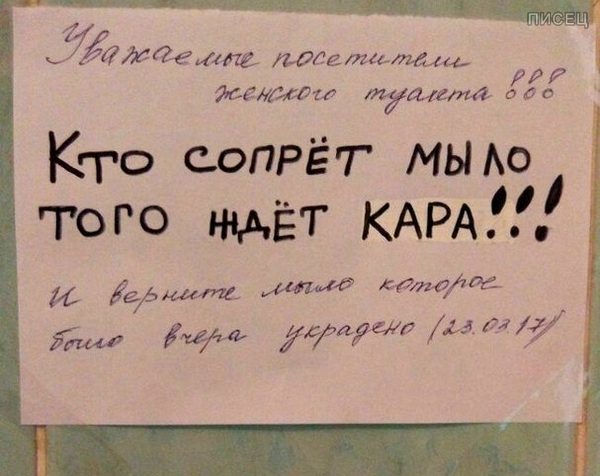 писец
Уважаемые посетители
женского туалета !!!
Кто сопрёт мыло
того ждёт КАРА!!!
И верните мыло которое
было вчера украдено (23.03.17)